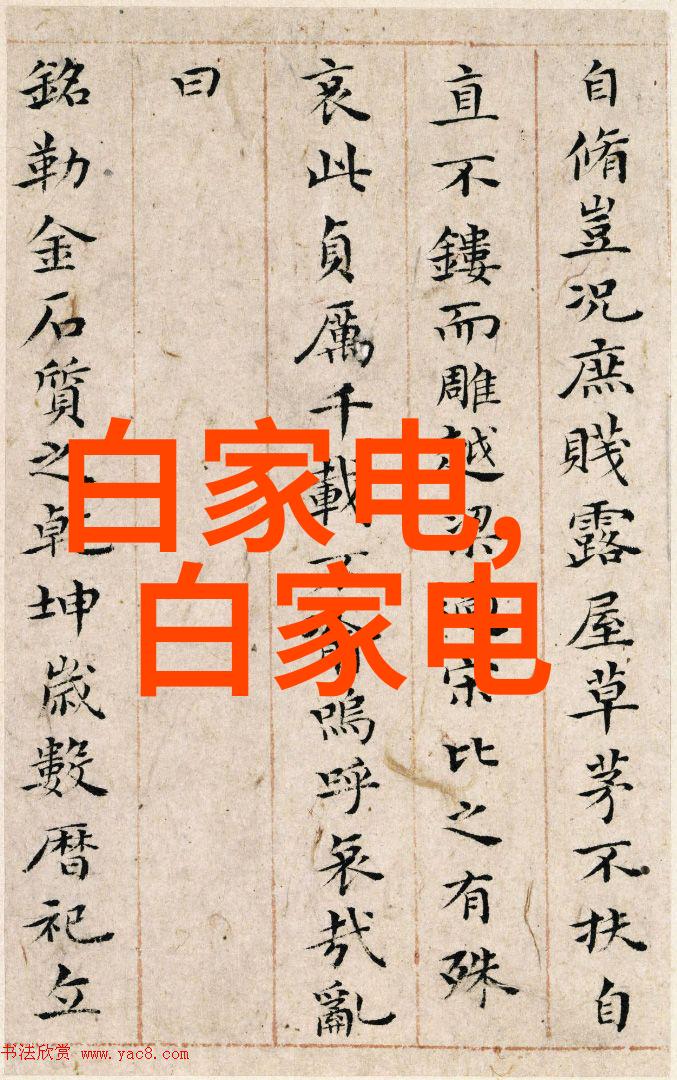 自脩豈況庶賤露屋草茅不扶自
直不鏤而雕越梁宋比之有殊
哀此貞厲千載嗚呼哀哉亂
曰
銘勒金石質之乾坤歲數暦祀立
白家电,
白家电
书法欣赏 www.yac8.com